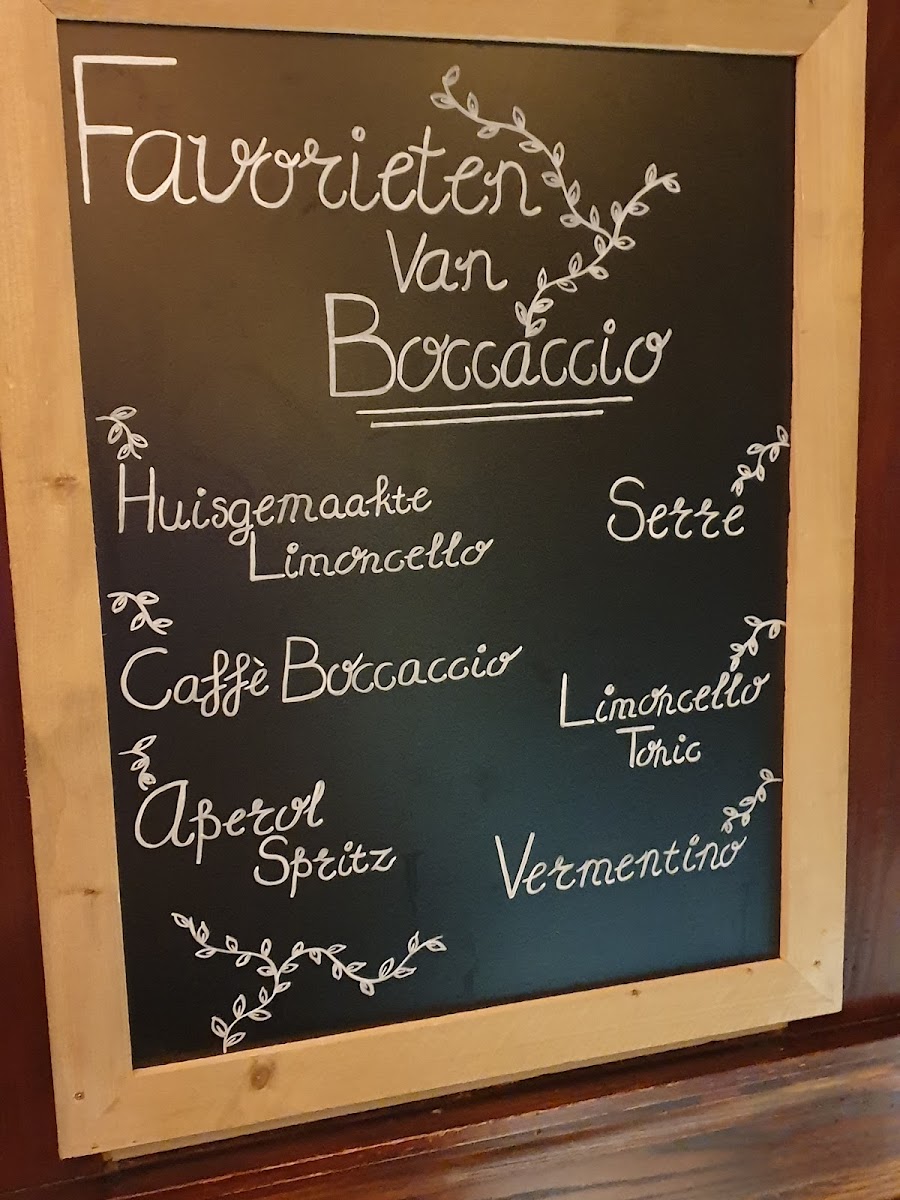 Favorieten
Van
Boccaccio
Huisgemaakte
Limoncello
Caffè Boccaccio
Aperol
Spritz
Serre
Limoncello
Tonic
Vermentino